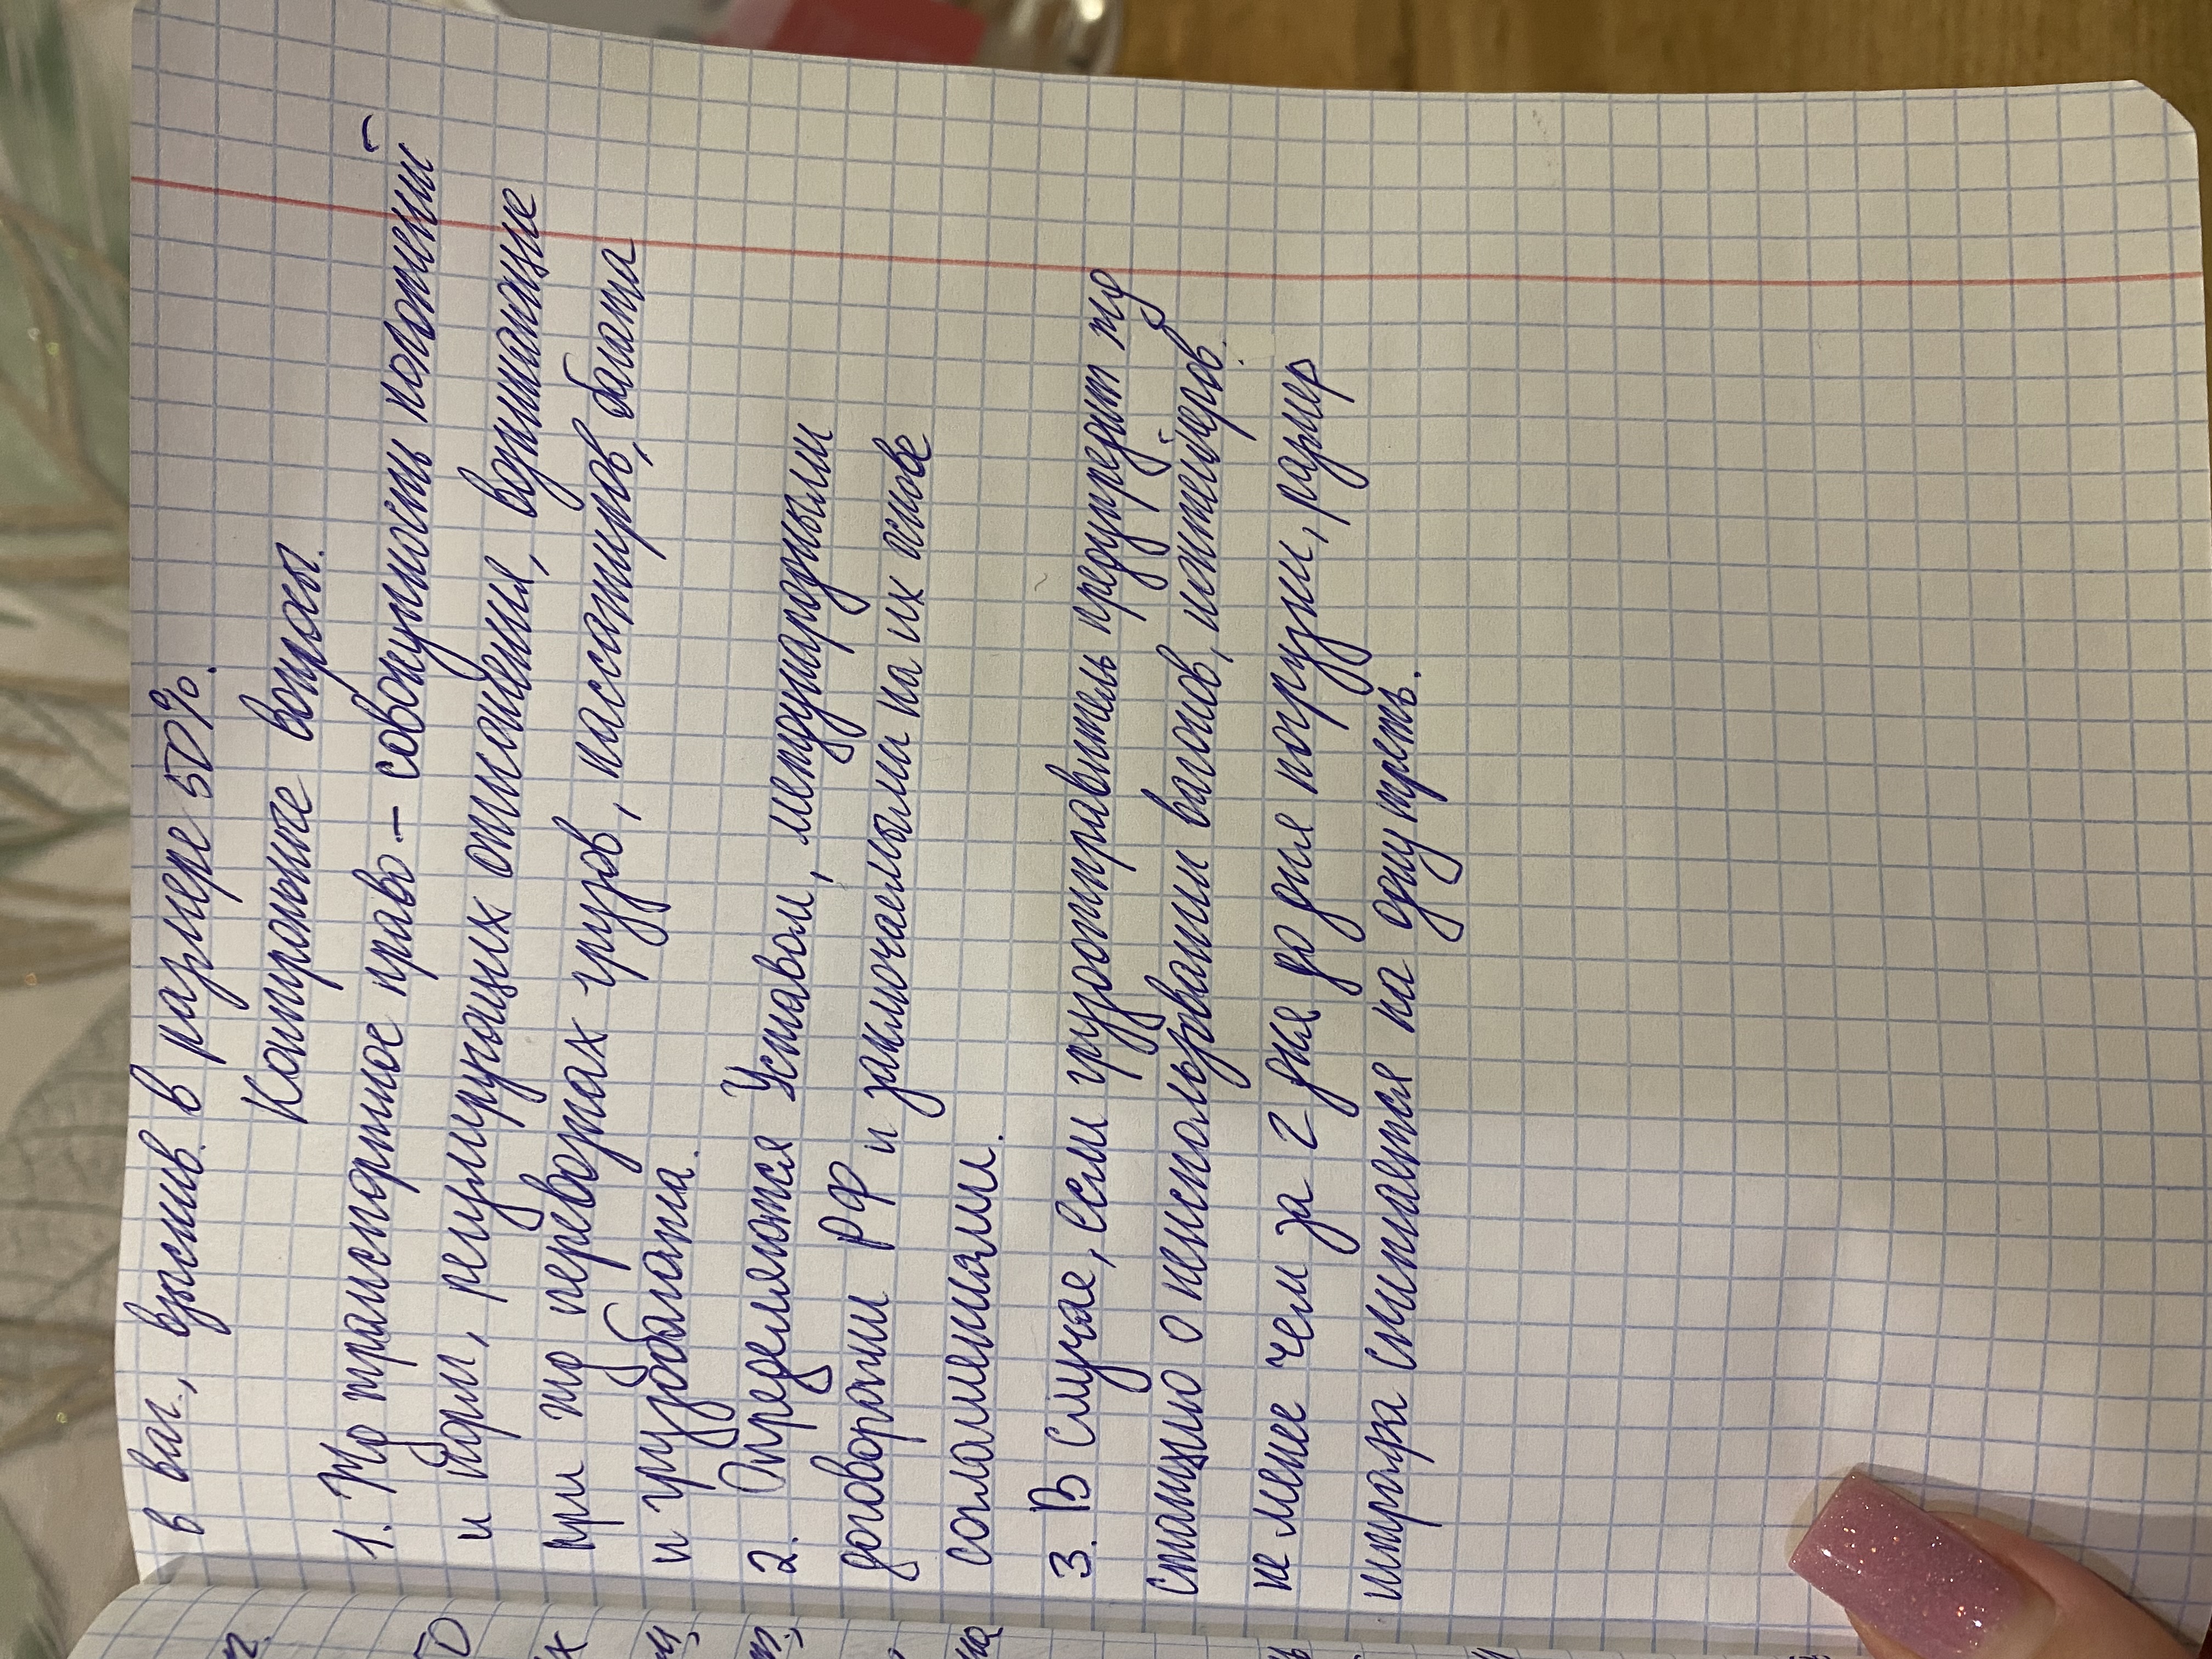 в ваг., времив. в размере 50%.
Контрольные вопросы.
1. Жд транспортное право – совокупность положений
и норм, регулирующих отношения, возникающие
при жд перевозках грузов, пассажиров, багажа
и грузобагажа.
2. Определяются Уставом, международными
договорами РФ и заключаемыми на их основе
соглашениями.
3. В случае, если грузоотправитель предупредит жд
станцию о неиспользовании вагонов, контейнеров
не менее чем за 2 дня до дня погрузки, размер
штрафа снижается на одну треть.